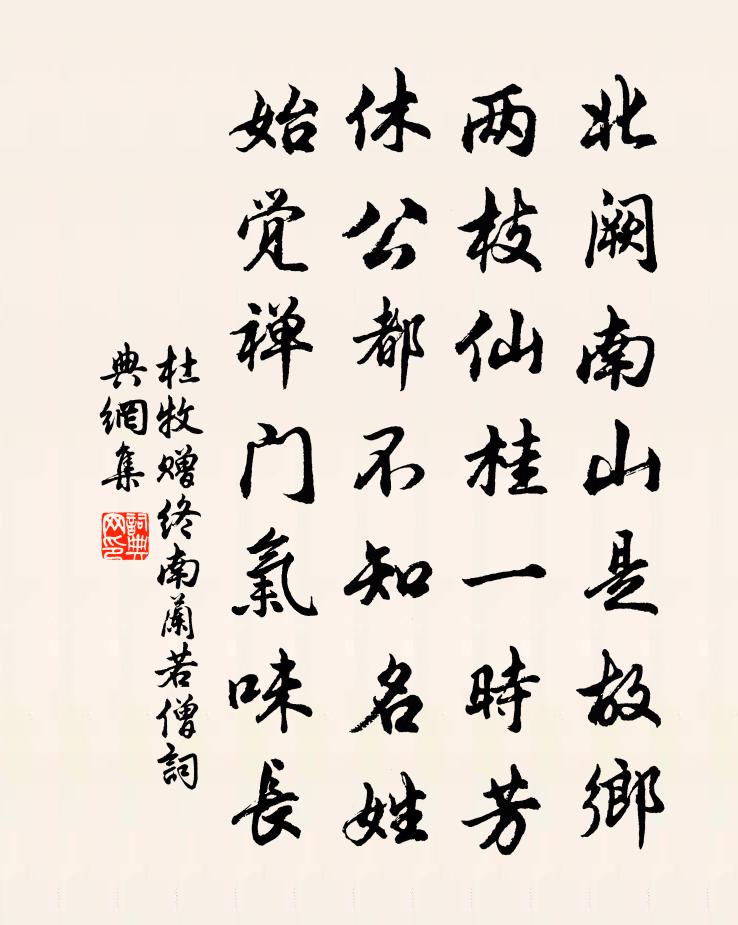 北阙南山是故鄉
两枝仙桂一時芳
休公都不知名姓
始觉禅门氣味長
杜牧赠终南蘭若僧詞
典網集
詞典
网印